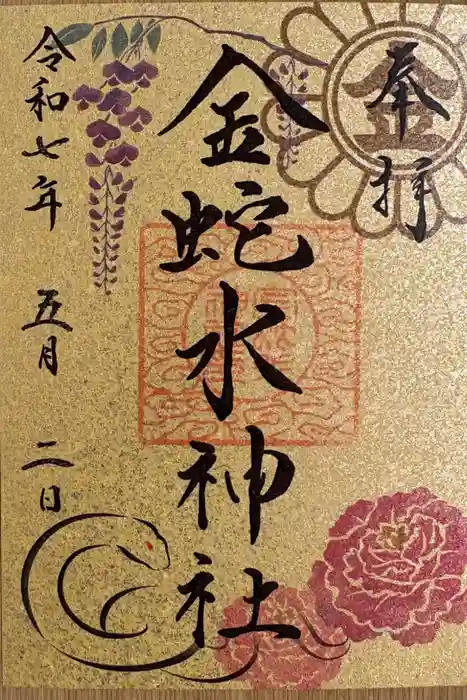 奉拝
金蛇水神社
令和七年 五月 二日